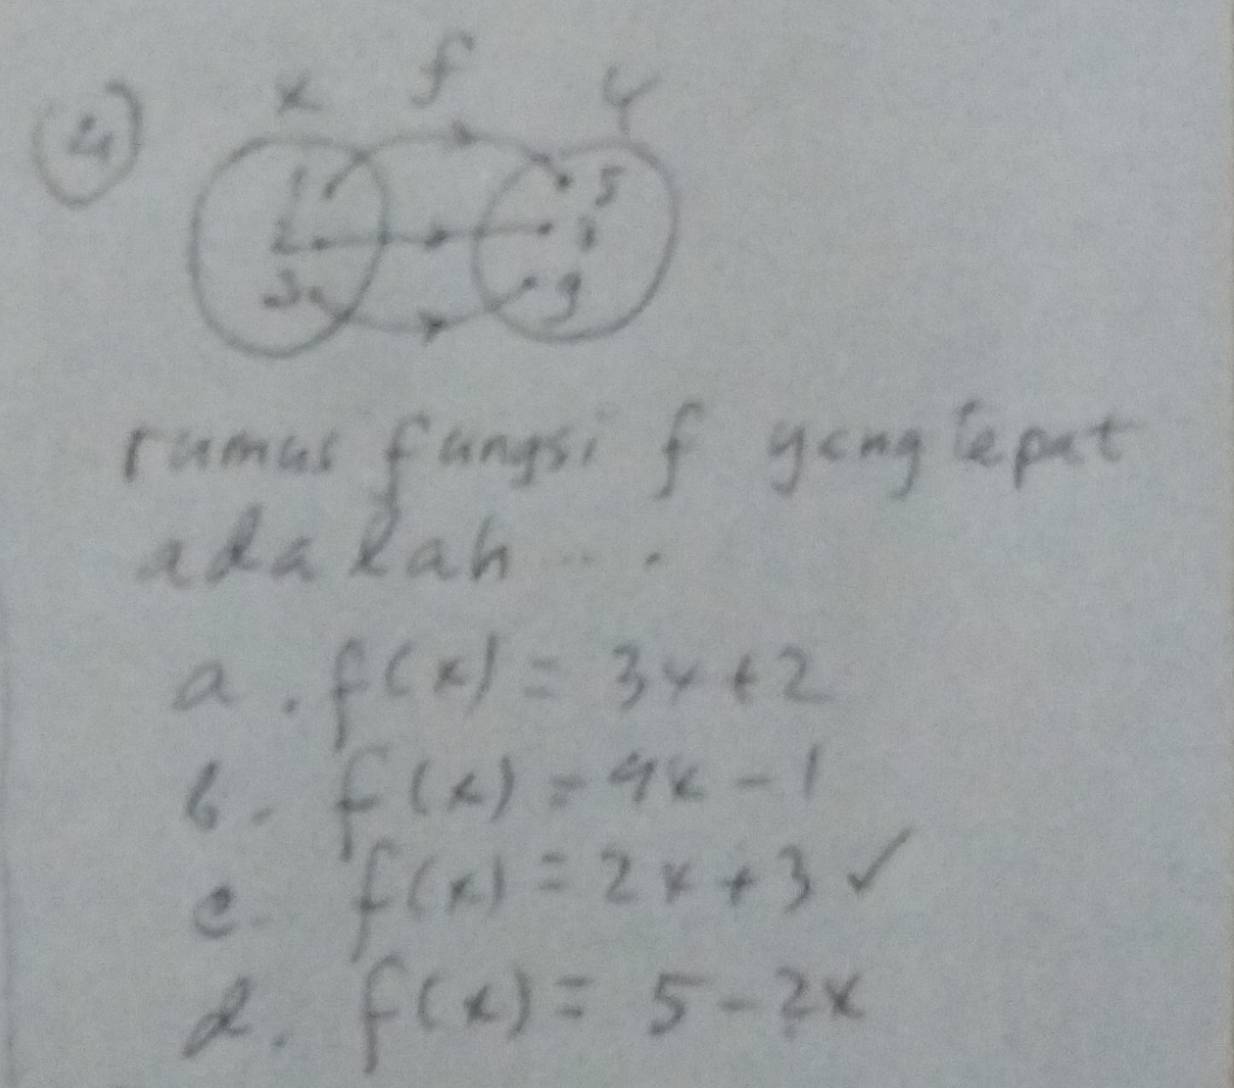 x f Y
4
1 5
2
3 9
rumus fungsi f yang tepat
adalah ....
a. f(x) = 3x + 2
b. f(x) = 4x - 1
c. f(x) = 2x + 3 ✓
d. f(x) = 5 - 2x